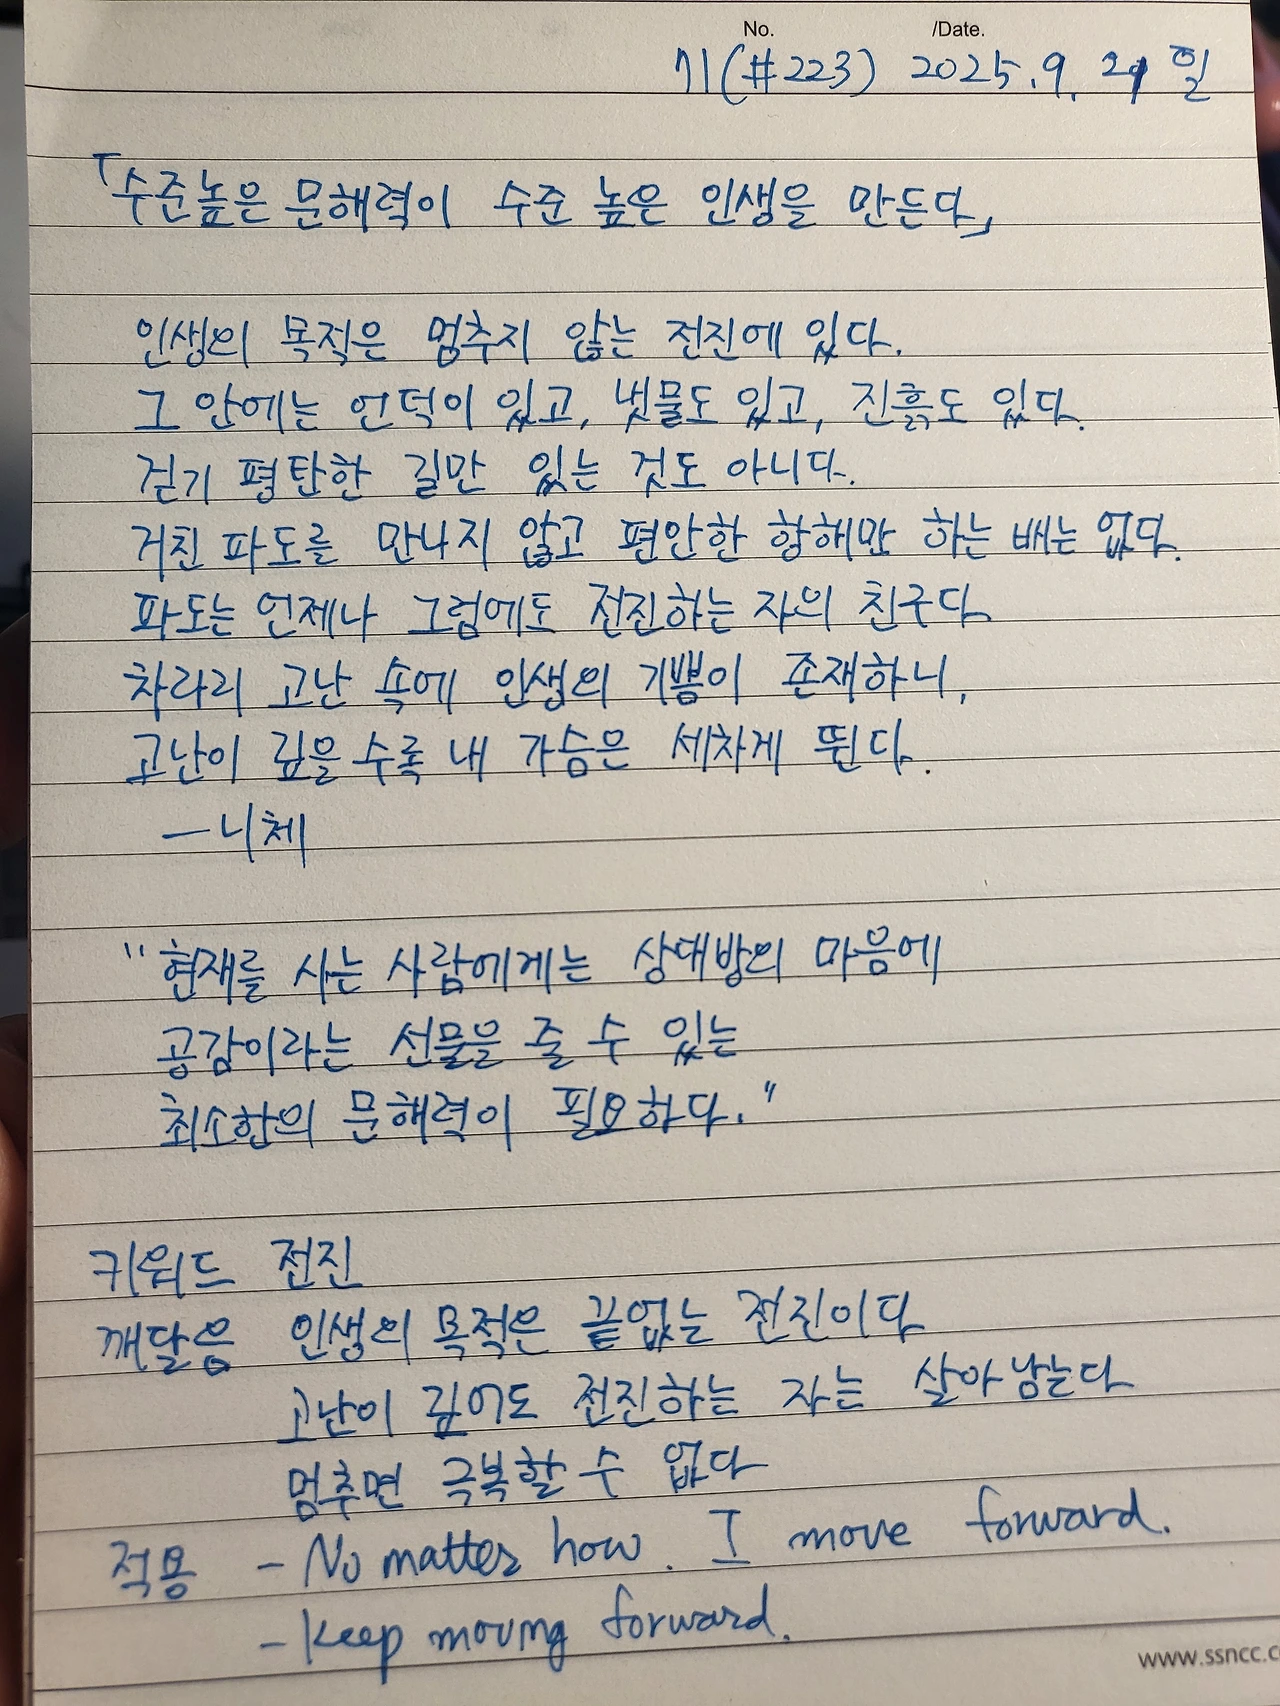 No. /Date.
기(#223) 2025.9. 21 일
「수준높은 문해력이 수준 높은 인생을 만든다」
인생의 목적은 멈추지 않는 전진에 있다.
그 안에는 언덕이 있고, 냇물도 있고, 진흙도 있다.
걷기 평탄한 길만 있는 것도 아니다.
거친 파도를 만나지 않고 편안한 항해만 하는 배는 없다.
파도는 언제나 그럼에도 전진하는 자의 친구다
차라리 고난 속에 인생의 기쁨이 존재하니,
고난이 깊을수록 내 가슴은 세차게 뛴다.
—니체
"현재를 사는 사람에게는 상대방의 마음에
공감이라는 선물을 줄 수 있는
최소한의 문해력이 필요하다."
키워드 전진
깨달음 인생의 목적은 끝없는 전진이다
고난이 깊어도 전진하는 자는 살아남는다
멈추면 극복할 수 없다
적용 - No matter how. I move forward.
- Keep moving forward.
www.ssncc.c